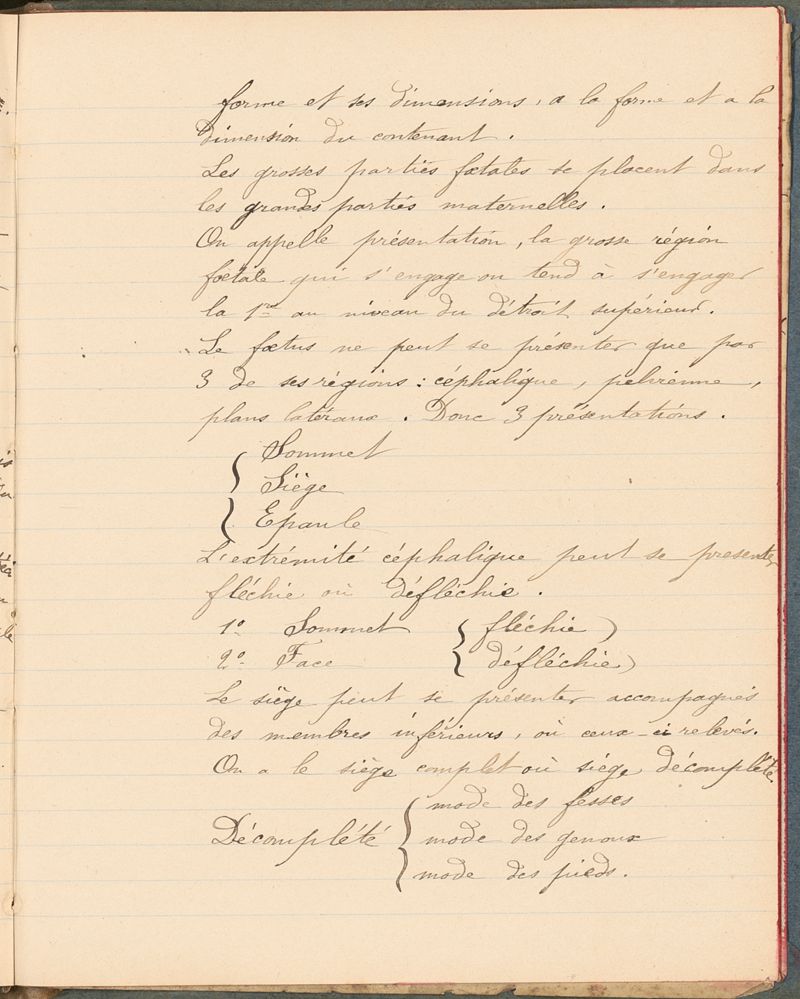 forme et ses dimensions, a la forme et a la
dimension du contenant.
Les grosses parties fœtales se placent dans
les grandes parties maternelles.
On appelle présentation, la grosse région
fœtale qui s'engage ou tend à s'engager
la 1re au niveau du détroit supérieur.
Le fœtus ne peut se présenter que par
3 de ses régions : céphalique, pelvienne,
plans latéraux. Donc 3 présentations.
{ Sommet
Siège
{ Epaule
L'extrémité céphalique peut se presenter
fléchie où défléchie.
1o Sommet { fléchie )
2o Face { défléchie )
Le siège peut se présenter accompagnés
des membres inférieurs, où ceux-ci relevés.
On a le siège complet où siège décomplété.
Décomplété { mode des fesses
mode des genoux
mode des pieds.